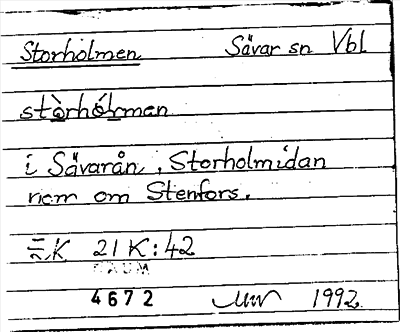 Storholmen Sävar sn Vbl
stòrhólman
i Sävarån, Storholmidan
nom om Stenfors.
EK 21 K:42
DAUM
4672 1992